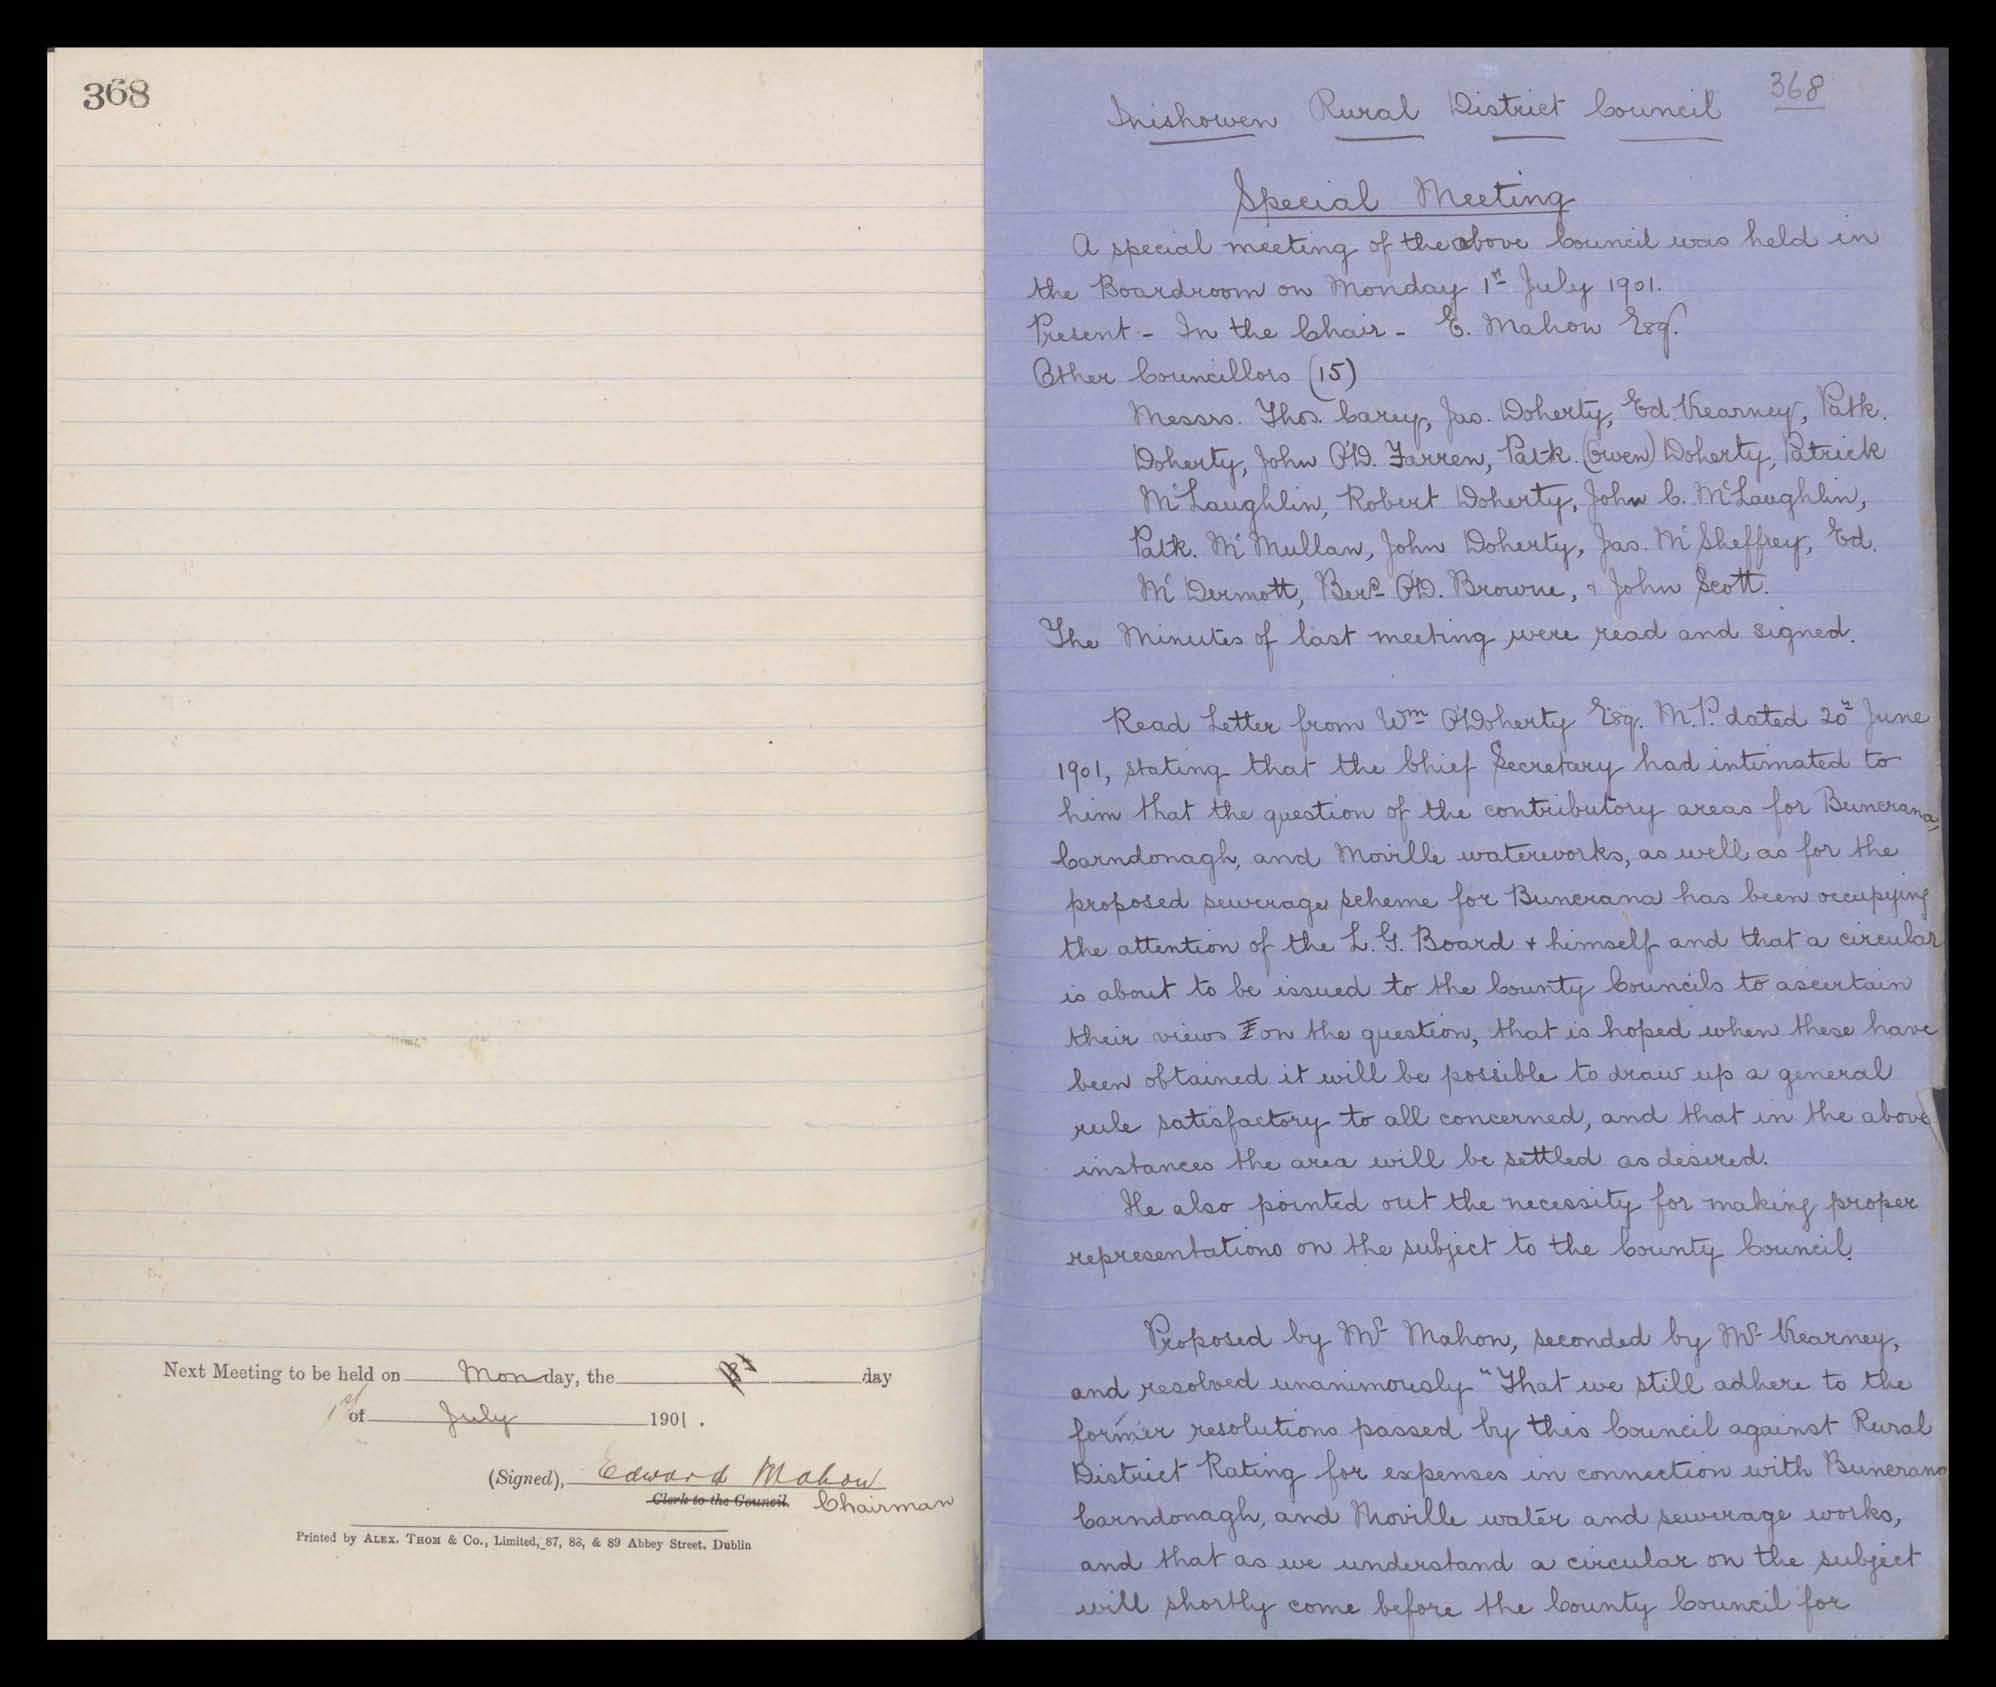 368
Next Meeting to be held on Monday, the 1st day
1st of July 1901.
(Signed), Edward Mahon
Clerk to the Council. Chairman
Printed by ALEX. THOM & Co., Limited, 87, 88, & 89 Abbey Street, Dublin
368
Inishowen Rural District Council
Special Meeting
A special meeting of the above Council was held in
the Boardroom on Monday 1st July 1901.
Present - In the Chair - E. Mahon Esq.
Other Councillors (15)
Messrs. Thos. Carey, Jas. Doherty, Ed. Kearney, Patk.
Doherty, John O'D. Farren, Patk. (Owen) Doherty, Patrick
McLaughlin, Robert Doherty, John C. McLaughlin,
Patk. McMullan, John Doherty, Jas. McSheffrey, Ed.
McDermott, Berd. O'D. Browne, & John Scott.
The Minutes of last meeting were read and signed.
Read Letter from Wm O'Doherty Esq. M.P. dated 20th June
1901, stating that the Chief Secretary had intimated to
him that the question of the contributory areas for Buncrana,
Carndonagh, and Moville waterworks, as well as for the
proposed sewerage scheme for Buncrana has been occupying
the attention of the L. G. Board + himself and that a circular
is about to be issued to the County Councils to ascertain
their views on the question, that is hoped when these have
been obtained it will be possible to draw up a general
rule satisfactory to all concerned, and that in the above
instances the area will be settled as desired.
He also pointed out the necessity for making proper
representations on the subject to the County Council.
Proposed by Mr Mahon, seconded by Mr Kearney,
and resolved unanimously "That we still adhere to the
former resolutions passed by this Council against Rural
District Rating for expenses in connection with Buncrana
Carndonagh, and Moville water and sewerage works,
and that as we understand a circular on the subject
will shortly come before the County Council for